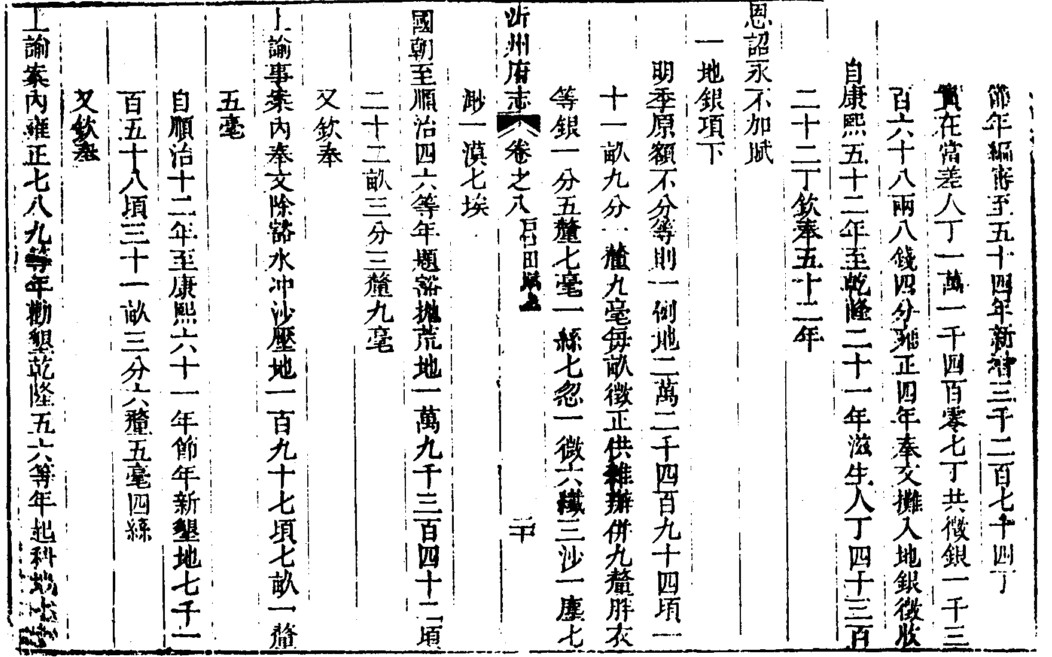 節年編審至五十四年新增三千二百七十四丁
實在當差人丁一萬一千四百零七丁共徵銀一千三
百六十八兩八錢四分雍正四年奉文攤入地銀徵收
自康熙五十二年至乾隆二十一年滋生人丁四十三百
二十二丁欽奉五十二年
恩詔永不加賦
一地銀項下
明季原額不分等則一例地二萬二千四百九十四頃一
十一畝九分一釐九毫每畝徵正供雜辦併九釐胖衣
等銀一分五釐七毫一絲七忽一微六纖三沙一塵七
渺一漠七埃
沂州府志 卷之八 田賦上 二十
國朝至順治四六等年題豁拋荒地一萬九千三百四十二頃
二十二畝三分三釐九毫
又欽奉
上諭事案內奉文除豁水冲沙壓地一百九十七頃七畝一釐
五毫
自順治十二年至康熙六十一年節年新墾地七千一
百五十八頃三十一畝三分六釐五毫四絲
又欽奉
上諭案內雍正七八九等年勸墾乾隆五六等年起科地